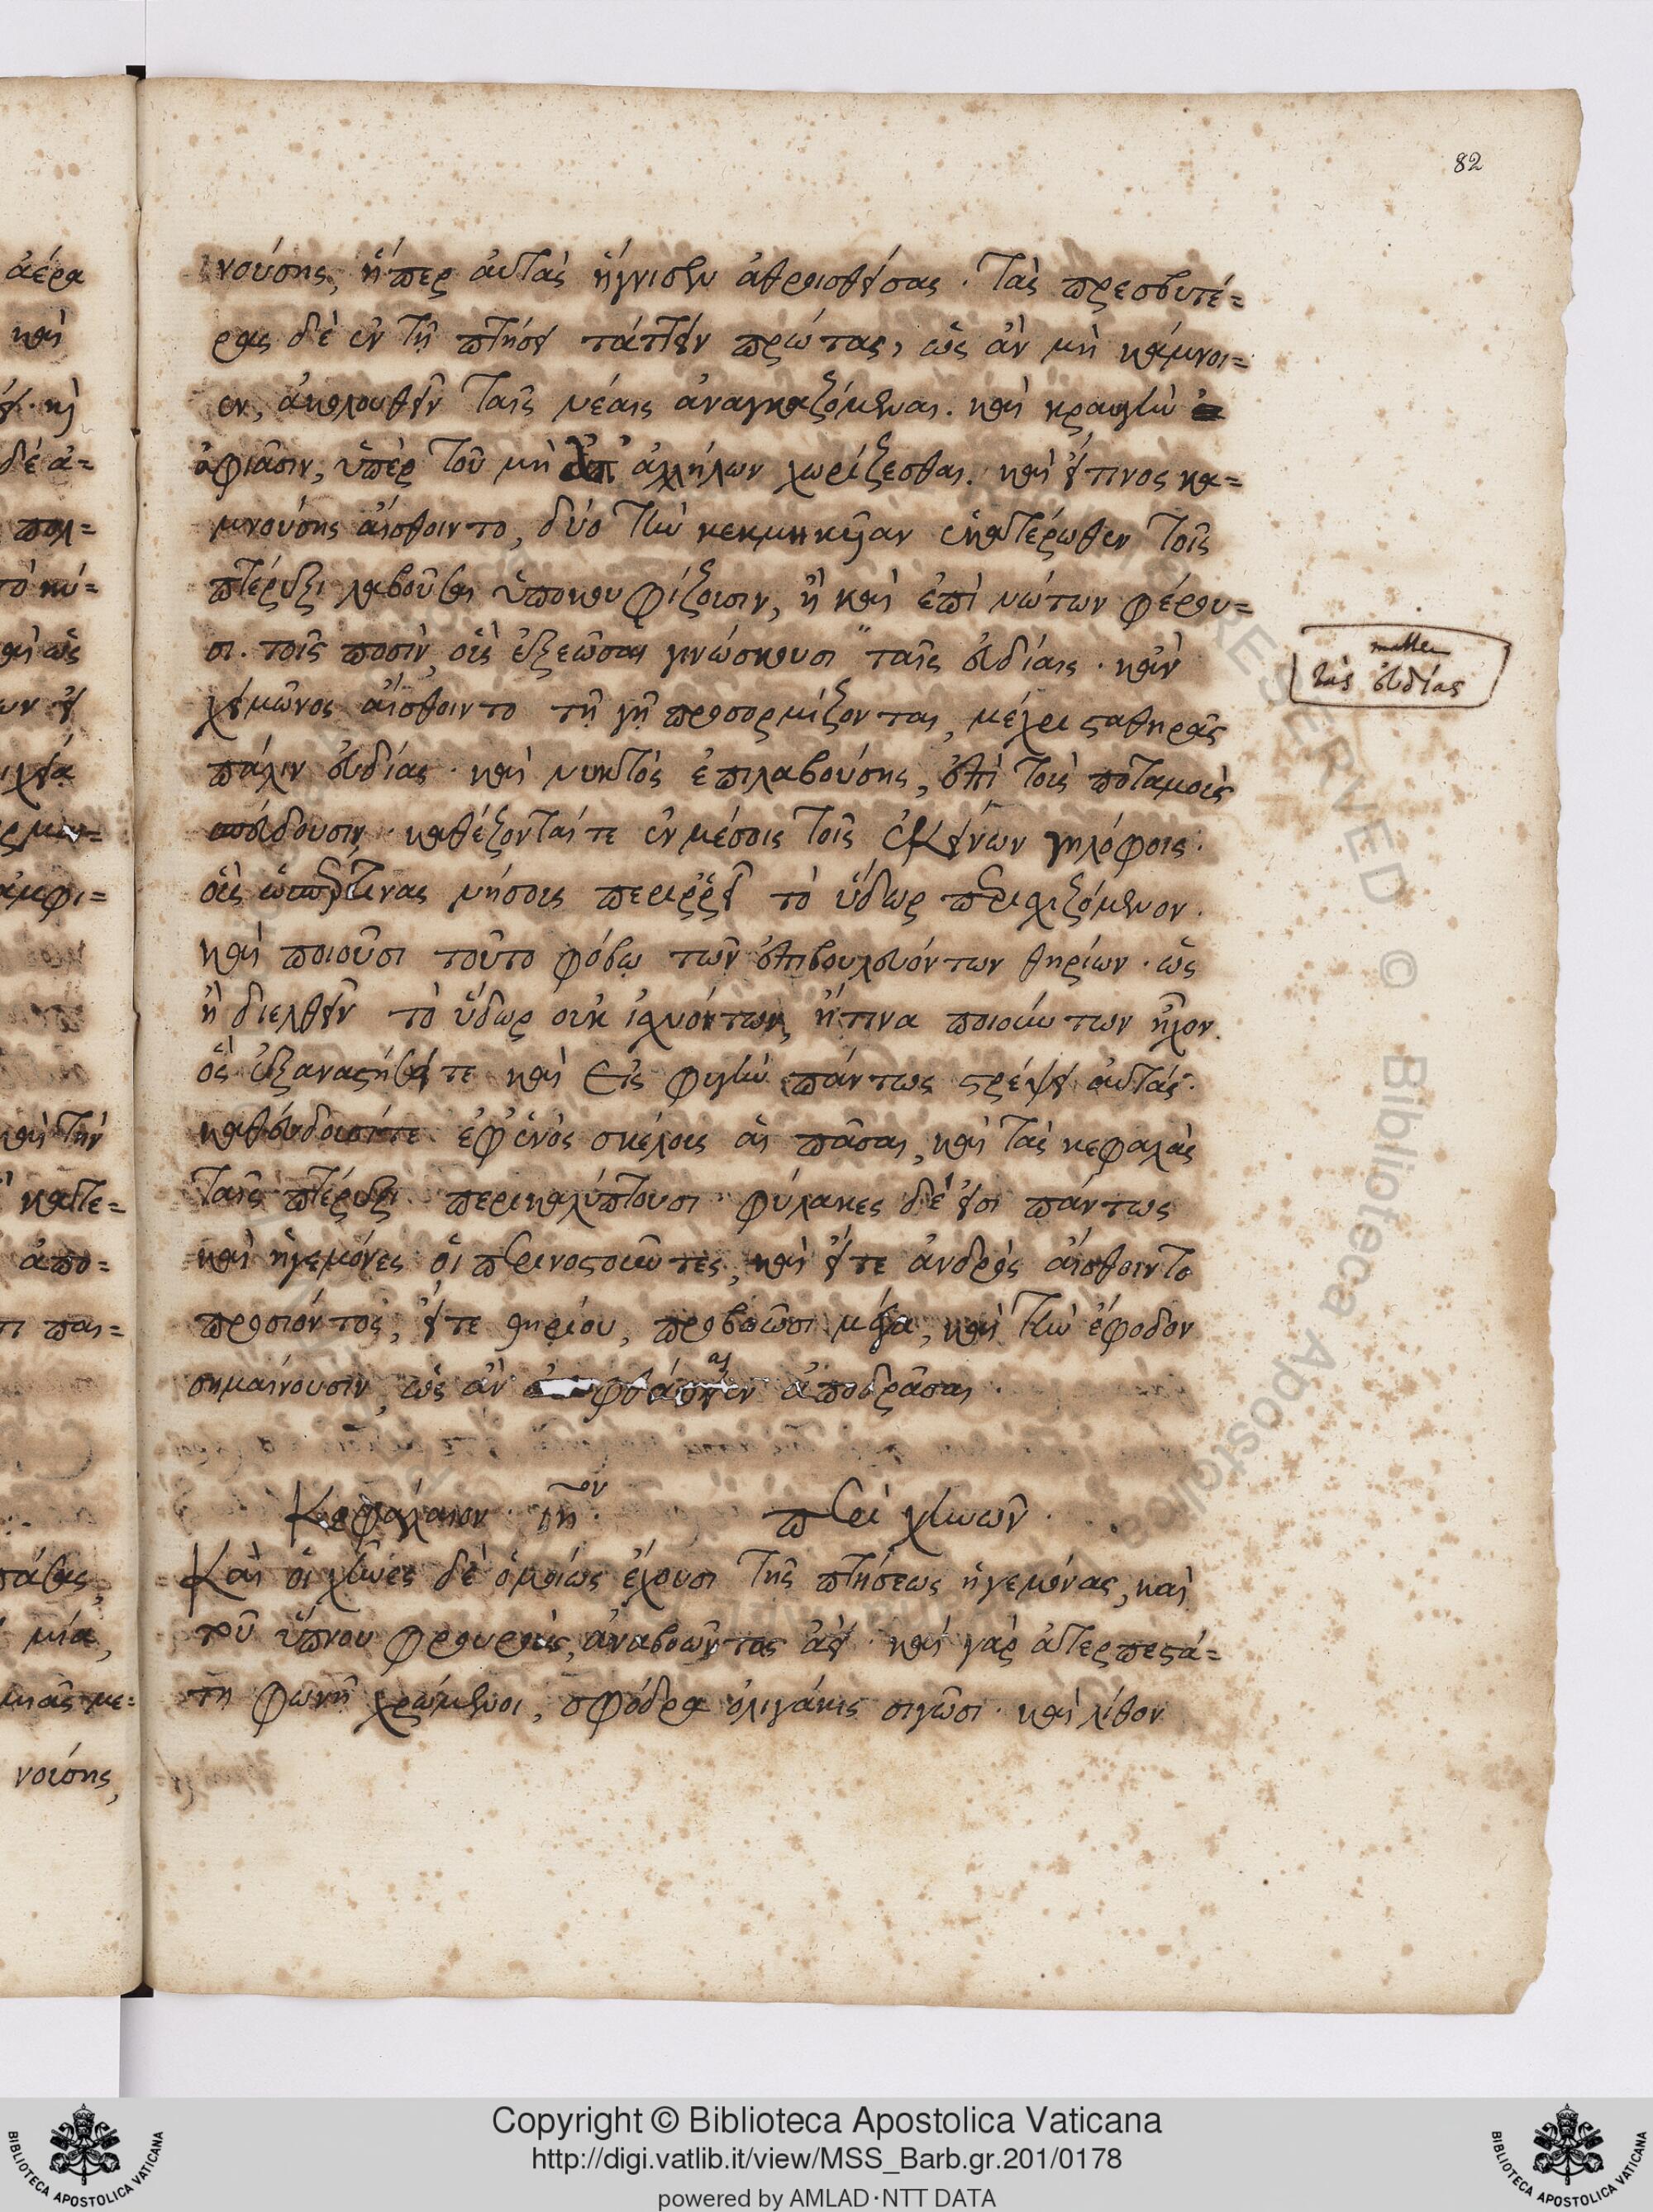 82
νούσης, ἥπερ αὐτὰς ἤγνισεν ἀθροισθείσας. τὰς πρεσβυτέ=
ρας δὲ ἐν τῇ πτήσει τάττειν πρώτας, ὡς ἂν μὴ κάμνοι=
εν, ἀκολουθεῖν ταῖς νέαις ἀναγκαζόμεναι. καὶ κραυγὴν
ἀφιᾶσιν, ὑπὲρ τοῦ μὴ ἀπ' ἀλλήλων χωρίζεσθαι. καὶ εἴ τινος κα=
μνούσης αἴσθοιντο, δύο τὴν κεκμηκυῖαν ἑκατέρωθεν τοῖς
πτέρυξι λαβοῦσαι ὑποκουφίζουσιν, ἢ καὶ ἐπὶ νώτων φέρου=
σι. τοῖς ποσὶν, οἷς ἐξεῶσαι γινώσκουσι ταῖς εὐδίαις. κἂν
mallem
τὰς εὐδίας
χειμῶνος αἴσθοιντο τῇ γῇ προσορμίζονται, μέχρι σταθηρᾶς
πάλιν εὐδίας. καὶ νυκτὸς ἐπιλαβούσης, ἐπὶ τοὺς ποταμοὺς
σπεύδουσιν καθέζονταί τε ἐν μέσοις τοῖς ἐκείνων γηλόφοις.
οὓς ὥσπερ τινας νήσους περιῤῥεῖ τὸ ὕδωρ περισχιζόμενον.
καὶ ποιοῦσι τοῦτο φόβῳ τῶν ἐπιβουλευόντων θηρίων. ὡς
ἢ διελθεῖν τὸ ὕδωρ οὐκ ἰσχυόντων, ἤ τινα ποιούντων ἦχον.
ὃς ἐξαναστήσει τε καὶ εἰς φυγὴν πάντως τρέψει αὐτάς.
καθεύδουσί τε ἐφ' ἑνὸς σκέλους αἱ πᾶσαι, καὶ τὰς κεφαλὰς
ταῖς πτέρυξι περικαλύπτουσι φύλακες δέ εἰσι πάντως
καὶ ἡγεμόνες οἱ περινοστοῦντες, καὶ εἴτε ἀνδρὸς αἴσθοιντο
προσιόντος, εἴτε θηρίου, προβοῶσι μέγα, καὶ τὴν ἔφοδον
σημαίνουσιν, ὡς ἂν φθάσαιεν ἀποδρᾶσαι.
Κεφάλαιον ιηον. περὶ χηνῶν.
Καὶ οἱ χῆνες δὲ ὁμοίως ἔχουσι τῆς πτήσεως ἡγεμόνας, καὶ
τοῦ ὕπνου φρουροὺς, ἀναβοῶντας ἀεί. καὶ γὰρ ἀτερπεστά=
τῃ φωνῇ χρώμενοι, σφόδρα ὀλιγάκις σιγῶσι. καὶ λίθον
ἀέρα
καὶ
δὲ ἀ=
πολ=
καὶ ὡς
ἀμφι=
καὶ τὴν
κατε=
ἀπο=
μία,
νούσης,
Copyright © Biblioteca Apostolica Vaticana
http://digi.vatlib.it/view/MSS_Barb.gr.201/0178
powered by AMLAD·NTT DATA
BIBLIOTECA APOSTOLICA VATICANA
BIBLIOTECA APOSTOLICA VATICANA